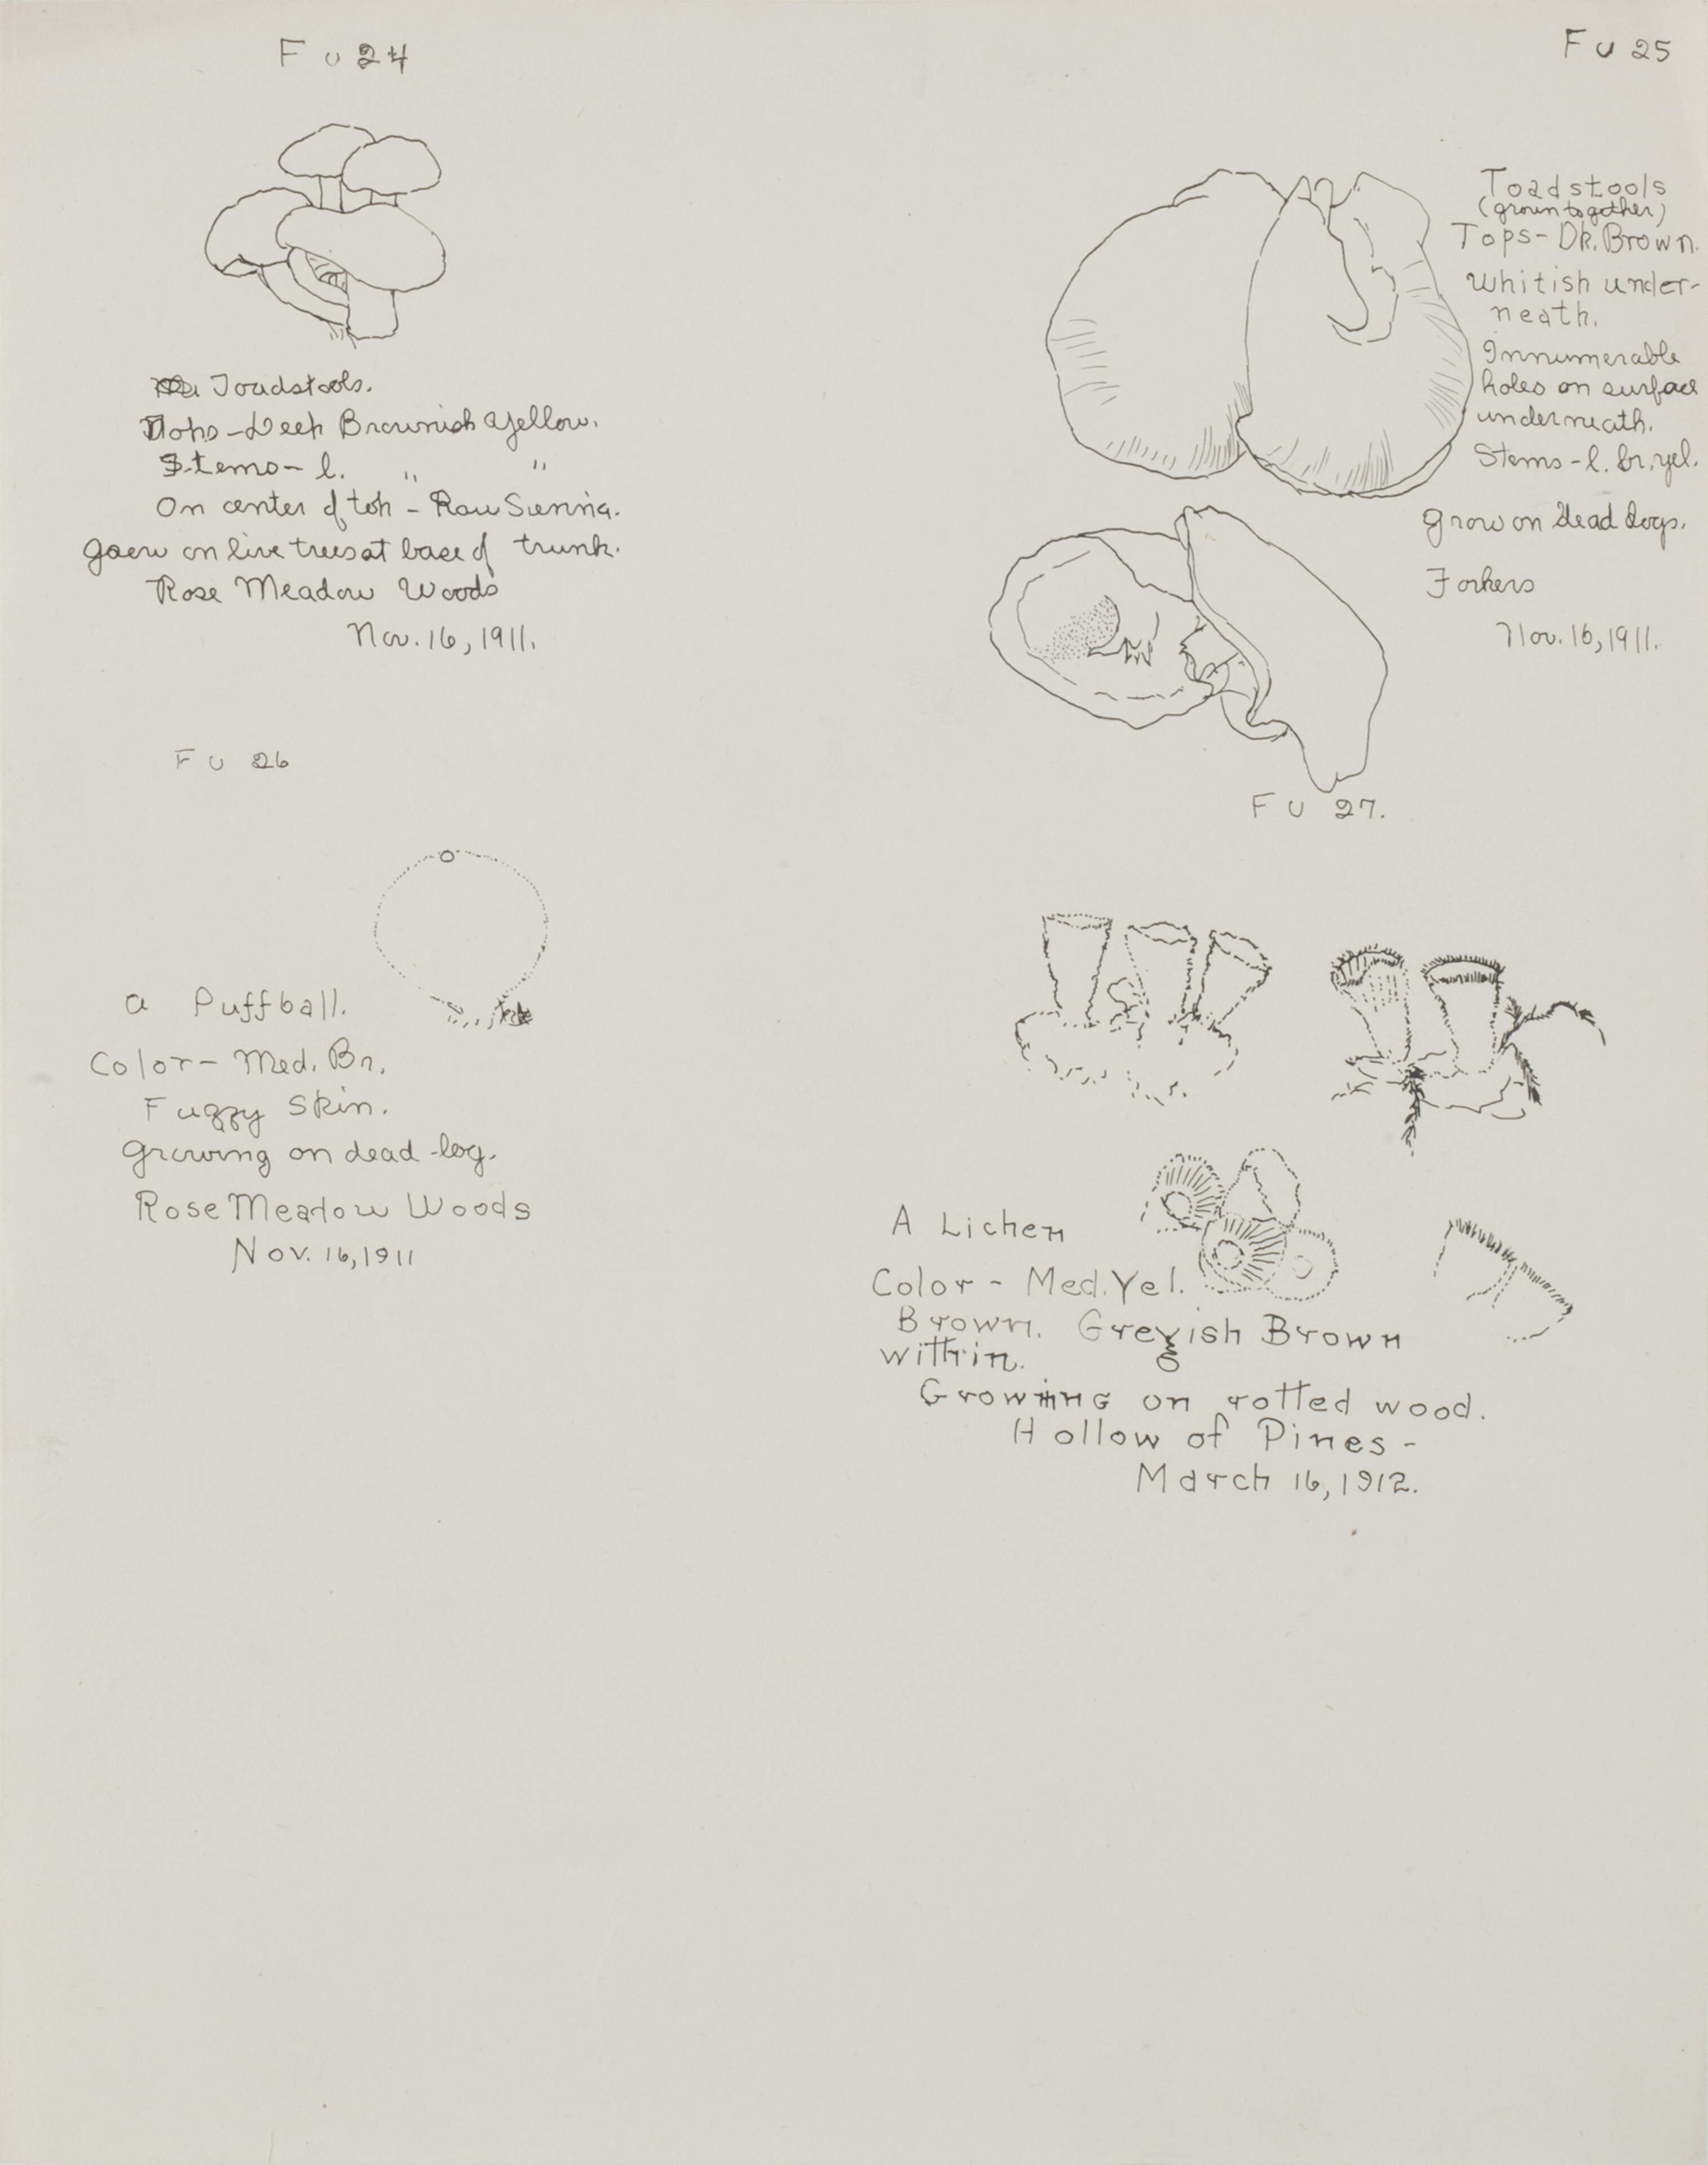 F U 24
Toadstools.
Tops - Deep Brownish Yellow.
Stems - l. " "
On center of top - Raw Sienna.
Grew on live trees at base of trunk.
Rose Meadow Woods
Nov. 16, 1911.
F U 25
Toadstools
(grown together)
Tops - Dk. Brown.
Whitish under-
neath.
Innumerable
holes on surface
underneath.
Stems - l. br. yel.
Grow on dead logs.
Forkers
Nov. 16, 1911.
F U 26
A Puffball.
Color - Med. Br.
Fuzzy Skin.
Growing on dead log.
Rose Meadow Woods
Nov. 16, 1911
F U 27.
A Lichen
Color - Med. Yel.
Brown. Greyish Brown
within.
Growing on rotted wood.
Hollow of Pines -
March 16, 1912.